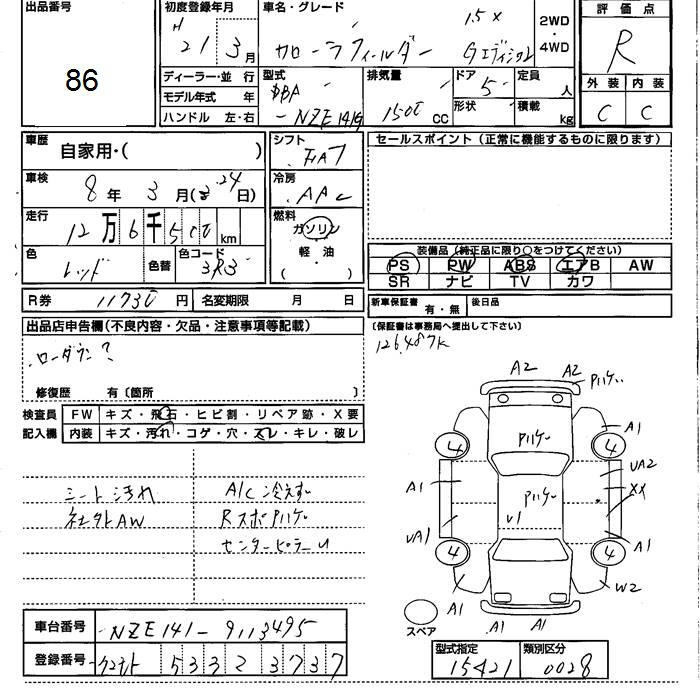 出品番号
86
初度登録年月
H
21 3月
車名・グレード
1.5X
カローラフィールダー Gエディション
2WD
・
4WD
評価点
R
外装 内装
C C
ディーラー・並行
モデル年式 年
ハンドル 左・右
型式
DBA
-NZE141G
排気量
1500 CC
ドア
5
形状
定員
人
積載
kg
車歴
自家用・( )
車検
8年 3月(3.24日)
走行
12万6千500 km
色
レッド
色替
色コード
3R3
シフト
FAT
冷房
AAC
燃料
ガソリン
軽・油
( )
セールスポイント(正常に機能するものに限ります)
装備品(純正品に限り○をつけてください)
PS PW ABS エアB AW
SR ナビ TV カワ
R券 11730円 名変期限 月 日
新車保証書 有・無 後日品
(保証書は事務局へ提出して下さい)
126,487K
出品店申告欄(不良内容・欠品・注意事項等記載)
ローダウン?
修復歴 有(箇所 )
検査員
記入欄
FW キズ・飛石・ヒビ割・リペア跡・X要
内装 キズ・汚れ・コゲ・穴・スレ・キレ・破レ
シート汚れ A/C冷えず
社外AW RスポPハゲ
センターピラーU
A2 A2 Pハゲ
A1
4 Pハゲ 4
UA2
A1 Pハゲ XX
V1
UA1 A1
4 4
A1 W2
A1 A1
スペア
車台番号 -NZE141-9113495
登録番号 5332 3737
型式指定 類別区分
15421 0028